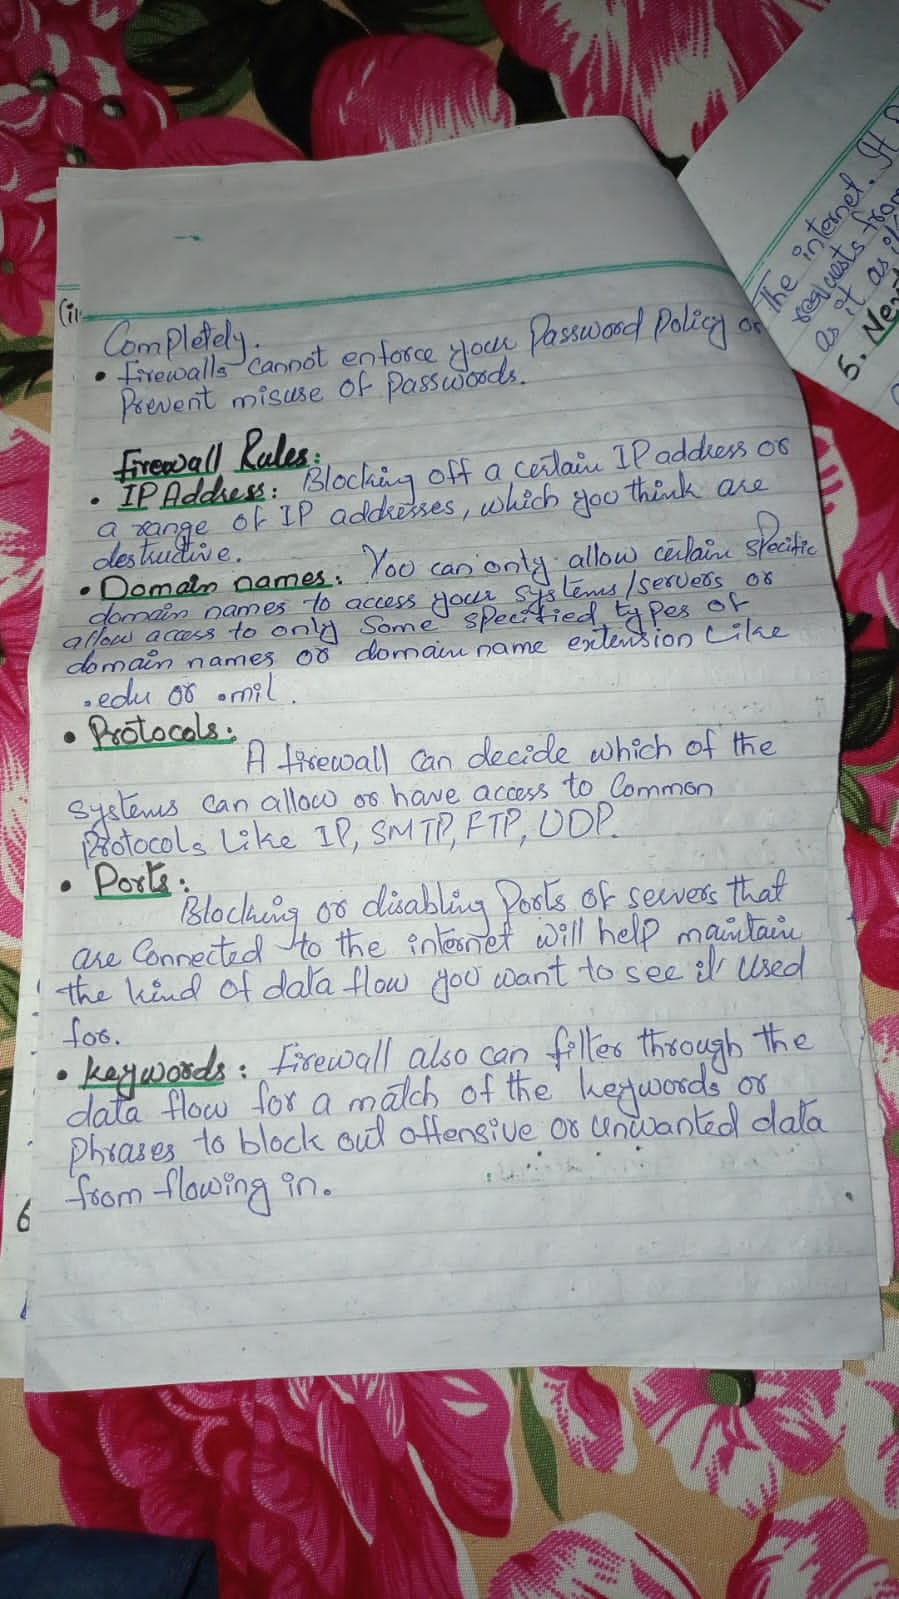 Completely.
• firewalls cannot enforce your Password Policy or
Prevent misuse of Passwords.
Firewall Rules:
• IP Address: Blocking off a certain IP address or
a range of IP addresses, which you think are
destructive.
• Domain names: You can only allow certain specific
domain names to access your systems/servers or
allow access to only Some specified types of
domain names or domain name extension Like
.edu or .mil.
• Protocols:
A firewall can decide which of the
systems can allow or have access to Common
Protocols Like IP, SMTP, FTP, UDP.
• Ports:
Blocking or disabling Ports of servers that
are Connected to the internet will help maintain
the kind of data flow you want to see it used
for.
• keywords: firewall also can filter through the
data flow for a match of the keywords or
Phrases to block out offensive or unwanted data
from flowing in.
The internet. It
requests from
as if as
5. Next
6